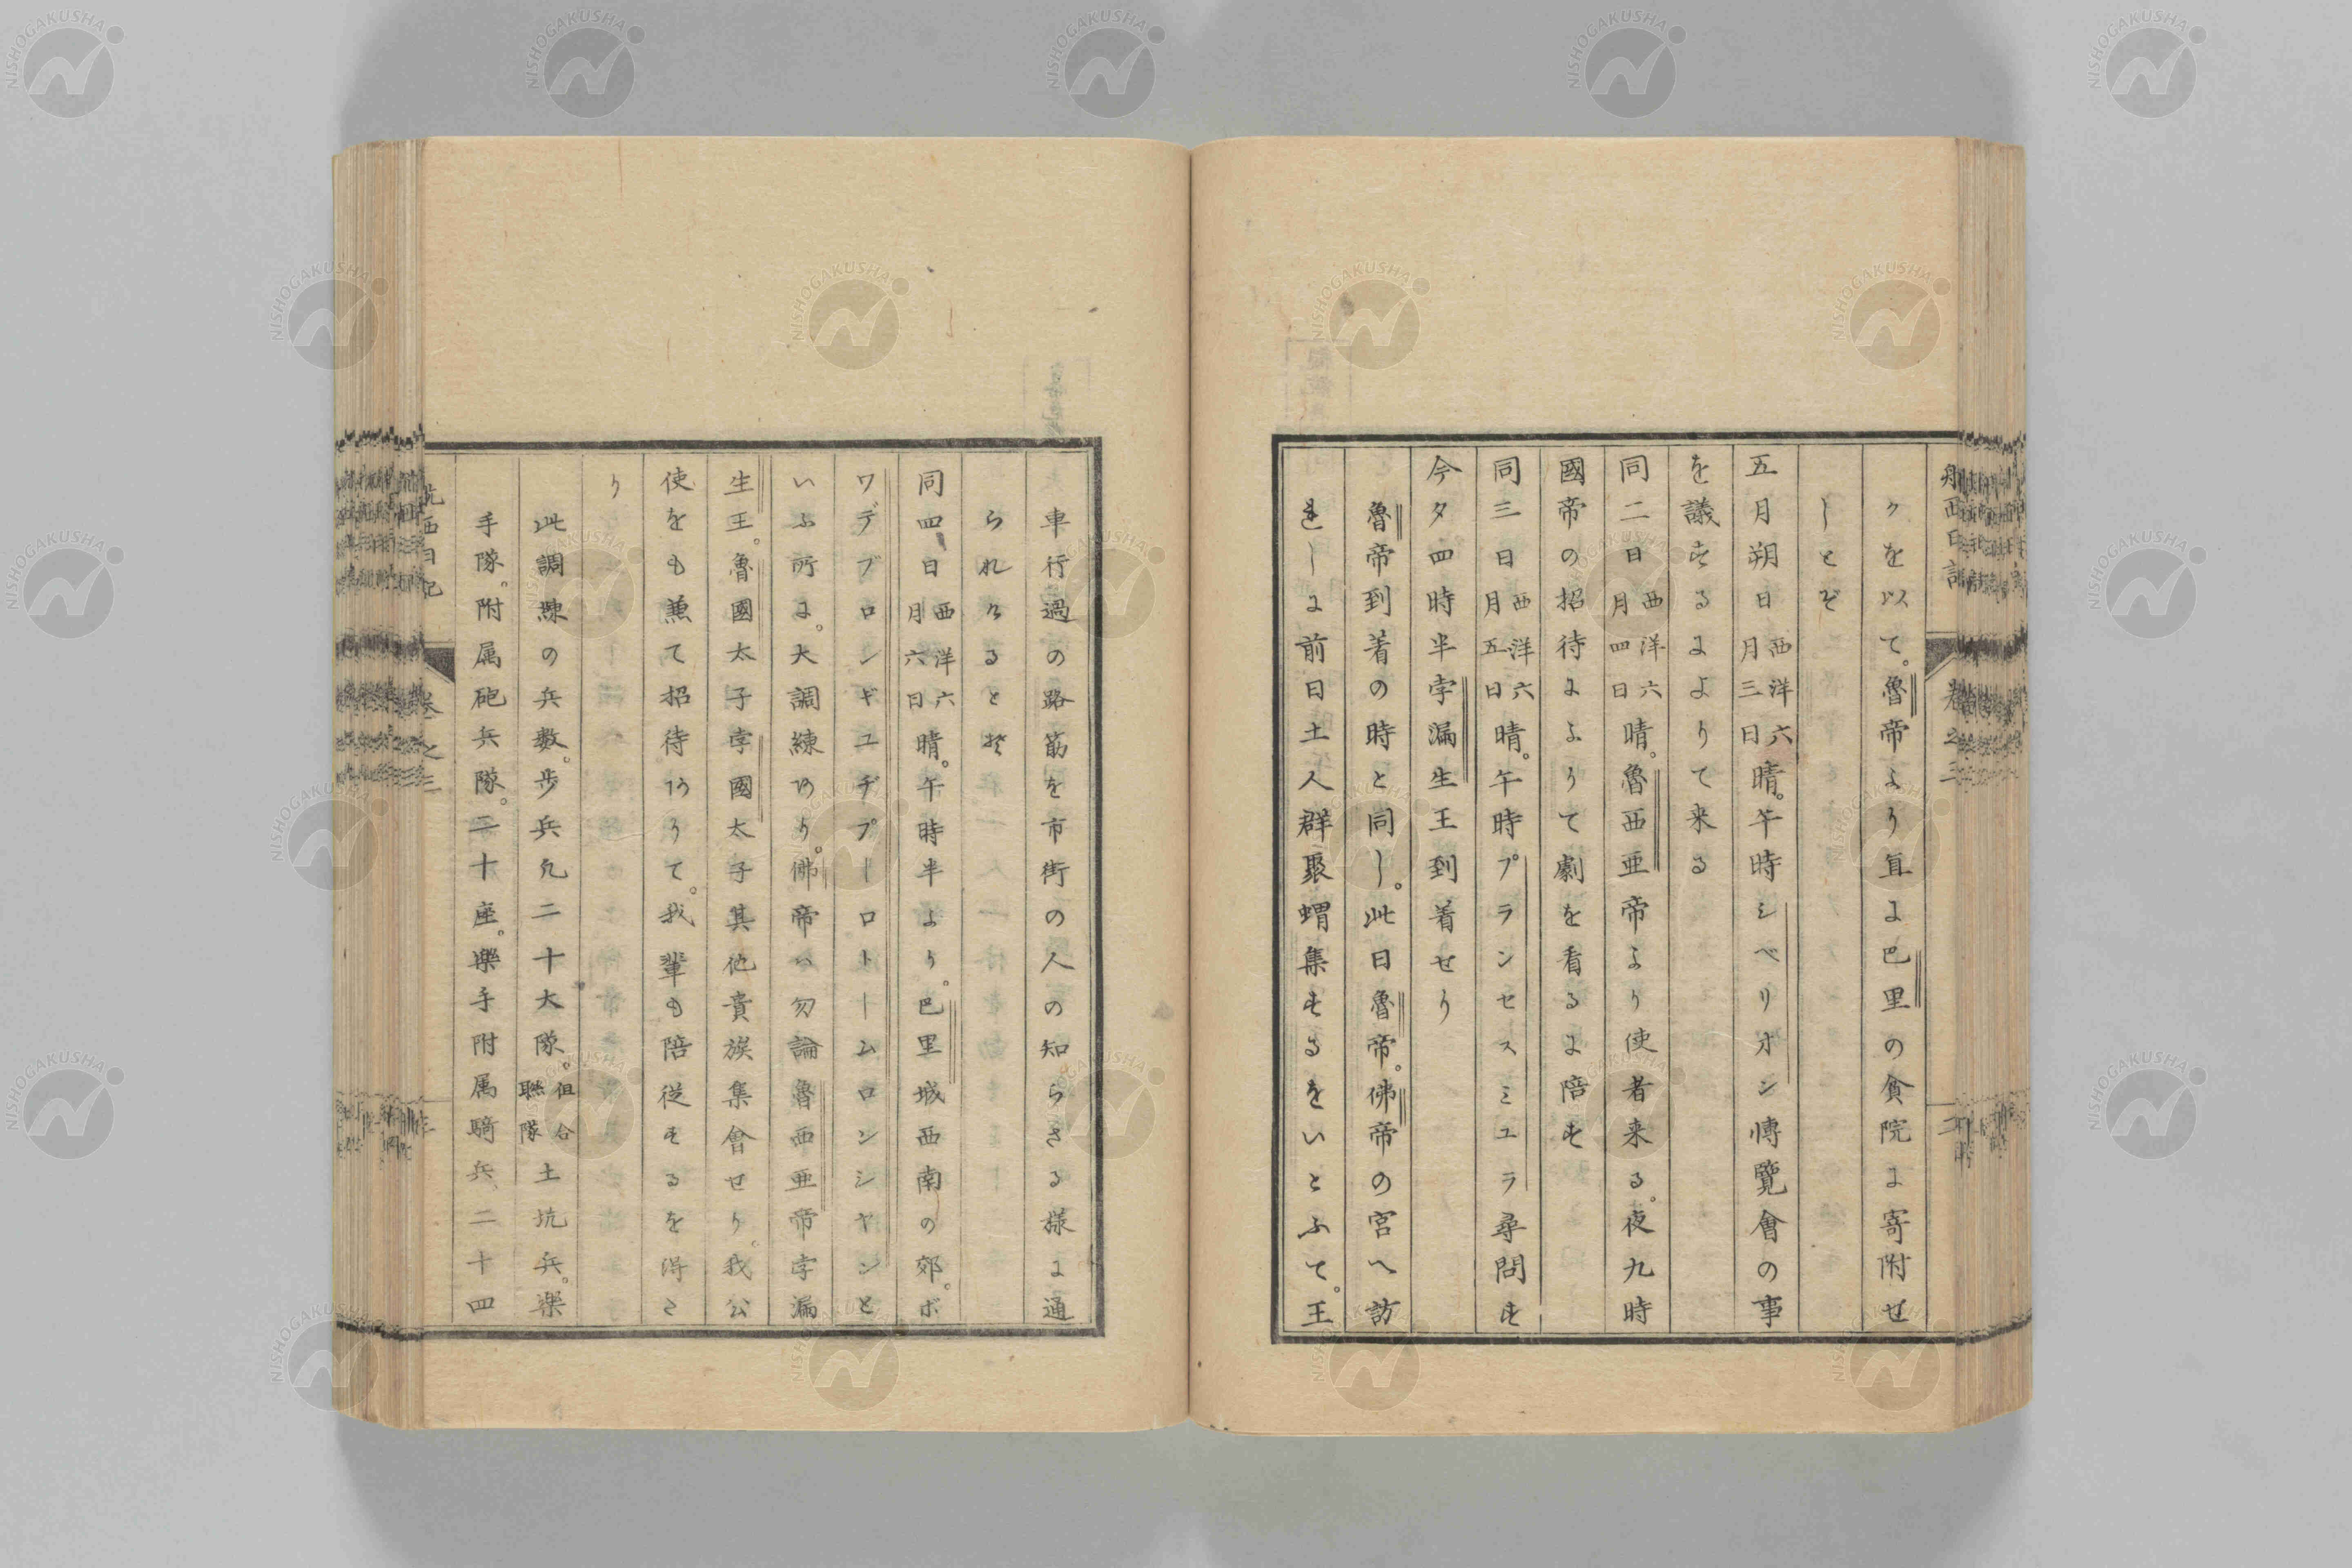 航西日記 卷之三 二
クを以て。魯帝より直に巴里の貧院に寄附せ
しとぞ
五月朔日西洋六月三日晴。午時シベリオン博覽會の事
を議するによりて来る
同二日西洋六月四日晴。魯西亜帝より使者来る。夜九時
國帝の招待によりて劇を看るに陪す
同三日西洋六月五日晴。午時プランセスミユラ尋問す
今夕四時半孛漏生王到着せり
魯帝到着の時と同し。此日魯帝。佛帝の宮へ訪
れしに前日土人群聚蝟集するをいとふて。王
車行過の路筋を市街の人の知らさる様に通
られけるとぞ
同四日西洋六月六日晴。午時半より。巴里城西南の郊。ボ
ワデブロンギユヂプーロトームロンシヤンと
いふ所に。大調練あり。佛帝ハ勿論魯西亜帝孛漏
生王。魯國太子孛國太子其他貴族集會せり。我公
使をも兼て招待ありて。我輩も陪従するを得た
り
此調練の兵数。歩兵凡二十大隊。但合聯隊土坑兵。樂
手隊。附属砲兵隊。二十座。樂手附属騎兵二十四
航西日記 卷之三
NISHOGAKUSHA